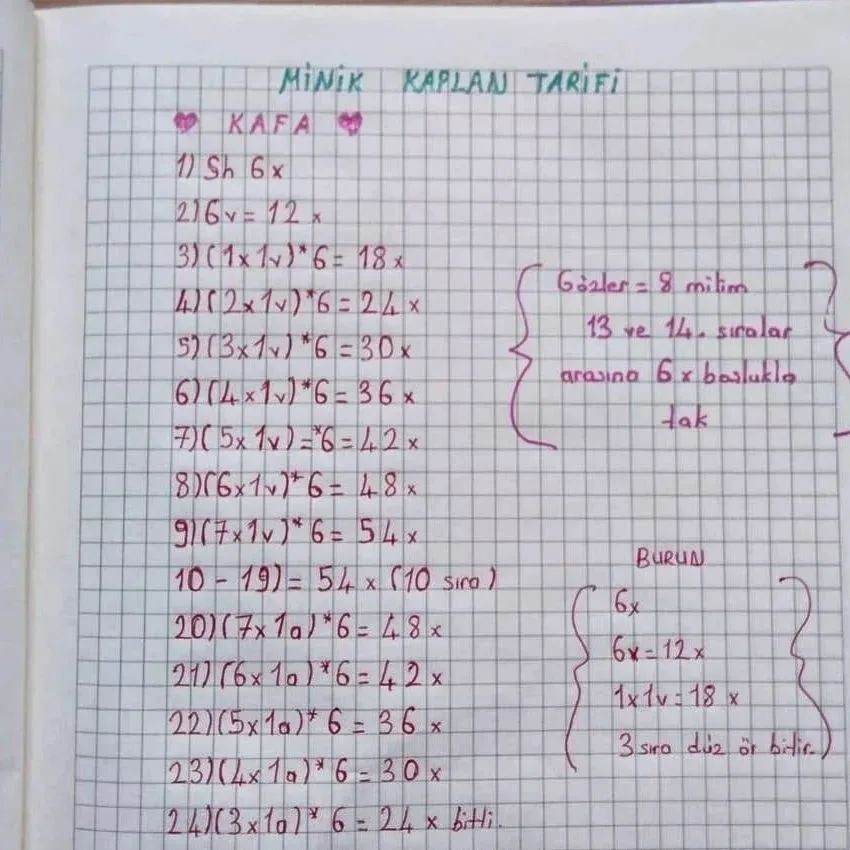 MİNİK KAPLAN TARİFİ
KAFA
1) Sh 6x
2) 6v = 12 x
3) (1x1v)*6 = 18x
4) (2x1v)*6 = 24x
5) (3x1v)*6 = 30x
6) (4x1v)*6 = 36x
7) (5x1v)=*6 = 42x
8) (6x1v)*6 = 48x
9) (7x1v)*6 = 54x
10 - 19) = 54x (10 sıra)
20) (7x1a)*6 = 48x
21) (6x1a)*6 = 42x
22) (5x1a)*6 = 36x
23) (4x1a)*6 = 30x
24) (3x1a)*6 = 24x bitti.
Gözler = 8 milim
13 ve 14. sıralar
arasına 6x boşlukla
tak
BURUN
6x
6x = 12x
1x1v = 18x
3 sıra düz ör bitir.